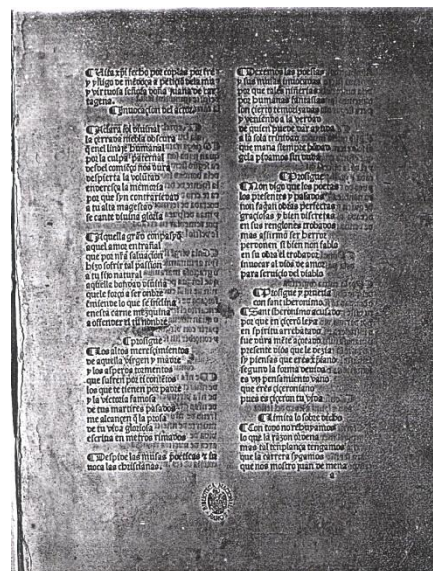 ¶Vita xp̄i fecho por coplas por fre
y yñigo de mēdoça a petiçiō dela muy
y virtuosa señora doña Juana de car
tagena.
¶Jnuocacion del actor
¶Aclara sol diuinal
la çerrada niebla escura
q̄ enel linaje humanal
por la culpa paternal
desdel comiēço nos dura
despierta la voluntad
endereça la memoria
por que syn contrariedad
a tu alta magestad
se cante diuina gloria
¶Aquella grād conpasyō
aquel amor entrañal
que por nr̄a saluaçion
hizo sofrir tal passion
a tu fijo natural
aquella bondad diuina
que le forço a ser onbre
emiende lo que se inclina
enesta carne mezquina
a offender el tu nonbre
¶prosigue
¶Los altos meresçimientos
de aquella virgen y madre
y los asperos tormentos
que sufren por ti contētos
los que te tienen por padre
y la victoria famosa
de tus martires pasados
me alcançen q̄ la prosa
de tu vida gloriosa
escriua en metros rimados
¶Despide las musas poeticas e in
uoca las christianas.
¶Dexemos las poesias
y sus musas inuocadas
por que tales niñerias
por humanas fantasias
son çierto temorizadas
y veniendo a la verdad
de quien puede dar ayuda
a la sola trinidad
que mana siempre bōdad
gela pidamos sin duda
¶Prosigue
¶Non digo que los poetas
los presentes y pasados
non fagan obras perfectas
graçiosas y bien discretas
en sus renglones trobados
mas affirmo ser herror
perdonen si bien non fablo
en su obra el trobador
inuocar al dios de amor
para seruiçio del diablo
¶Prosigue y prueua
con sant iheronimo.
¶Sant iheronimo acusado
por que en çiçerō leya
en spiritu arrebatado
fue dura mēte açotado
presente dios que le dezia
sy piensas que eres xp̄iano
segund la forma deuida
es vn pensamiento vano
que eres çiçeroniano
pues es çiçeron tu vida
¶Limita lo sobre dicho
¶Con todo no rehuyamos
lo que la razon ordena
mas tal templança tengamos
que la carrera sygamos
que nos mostro juan de mena
a